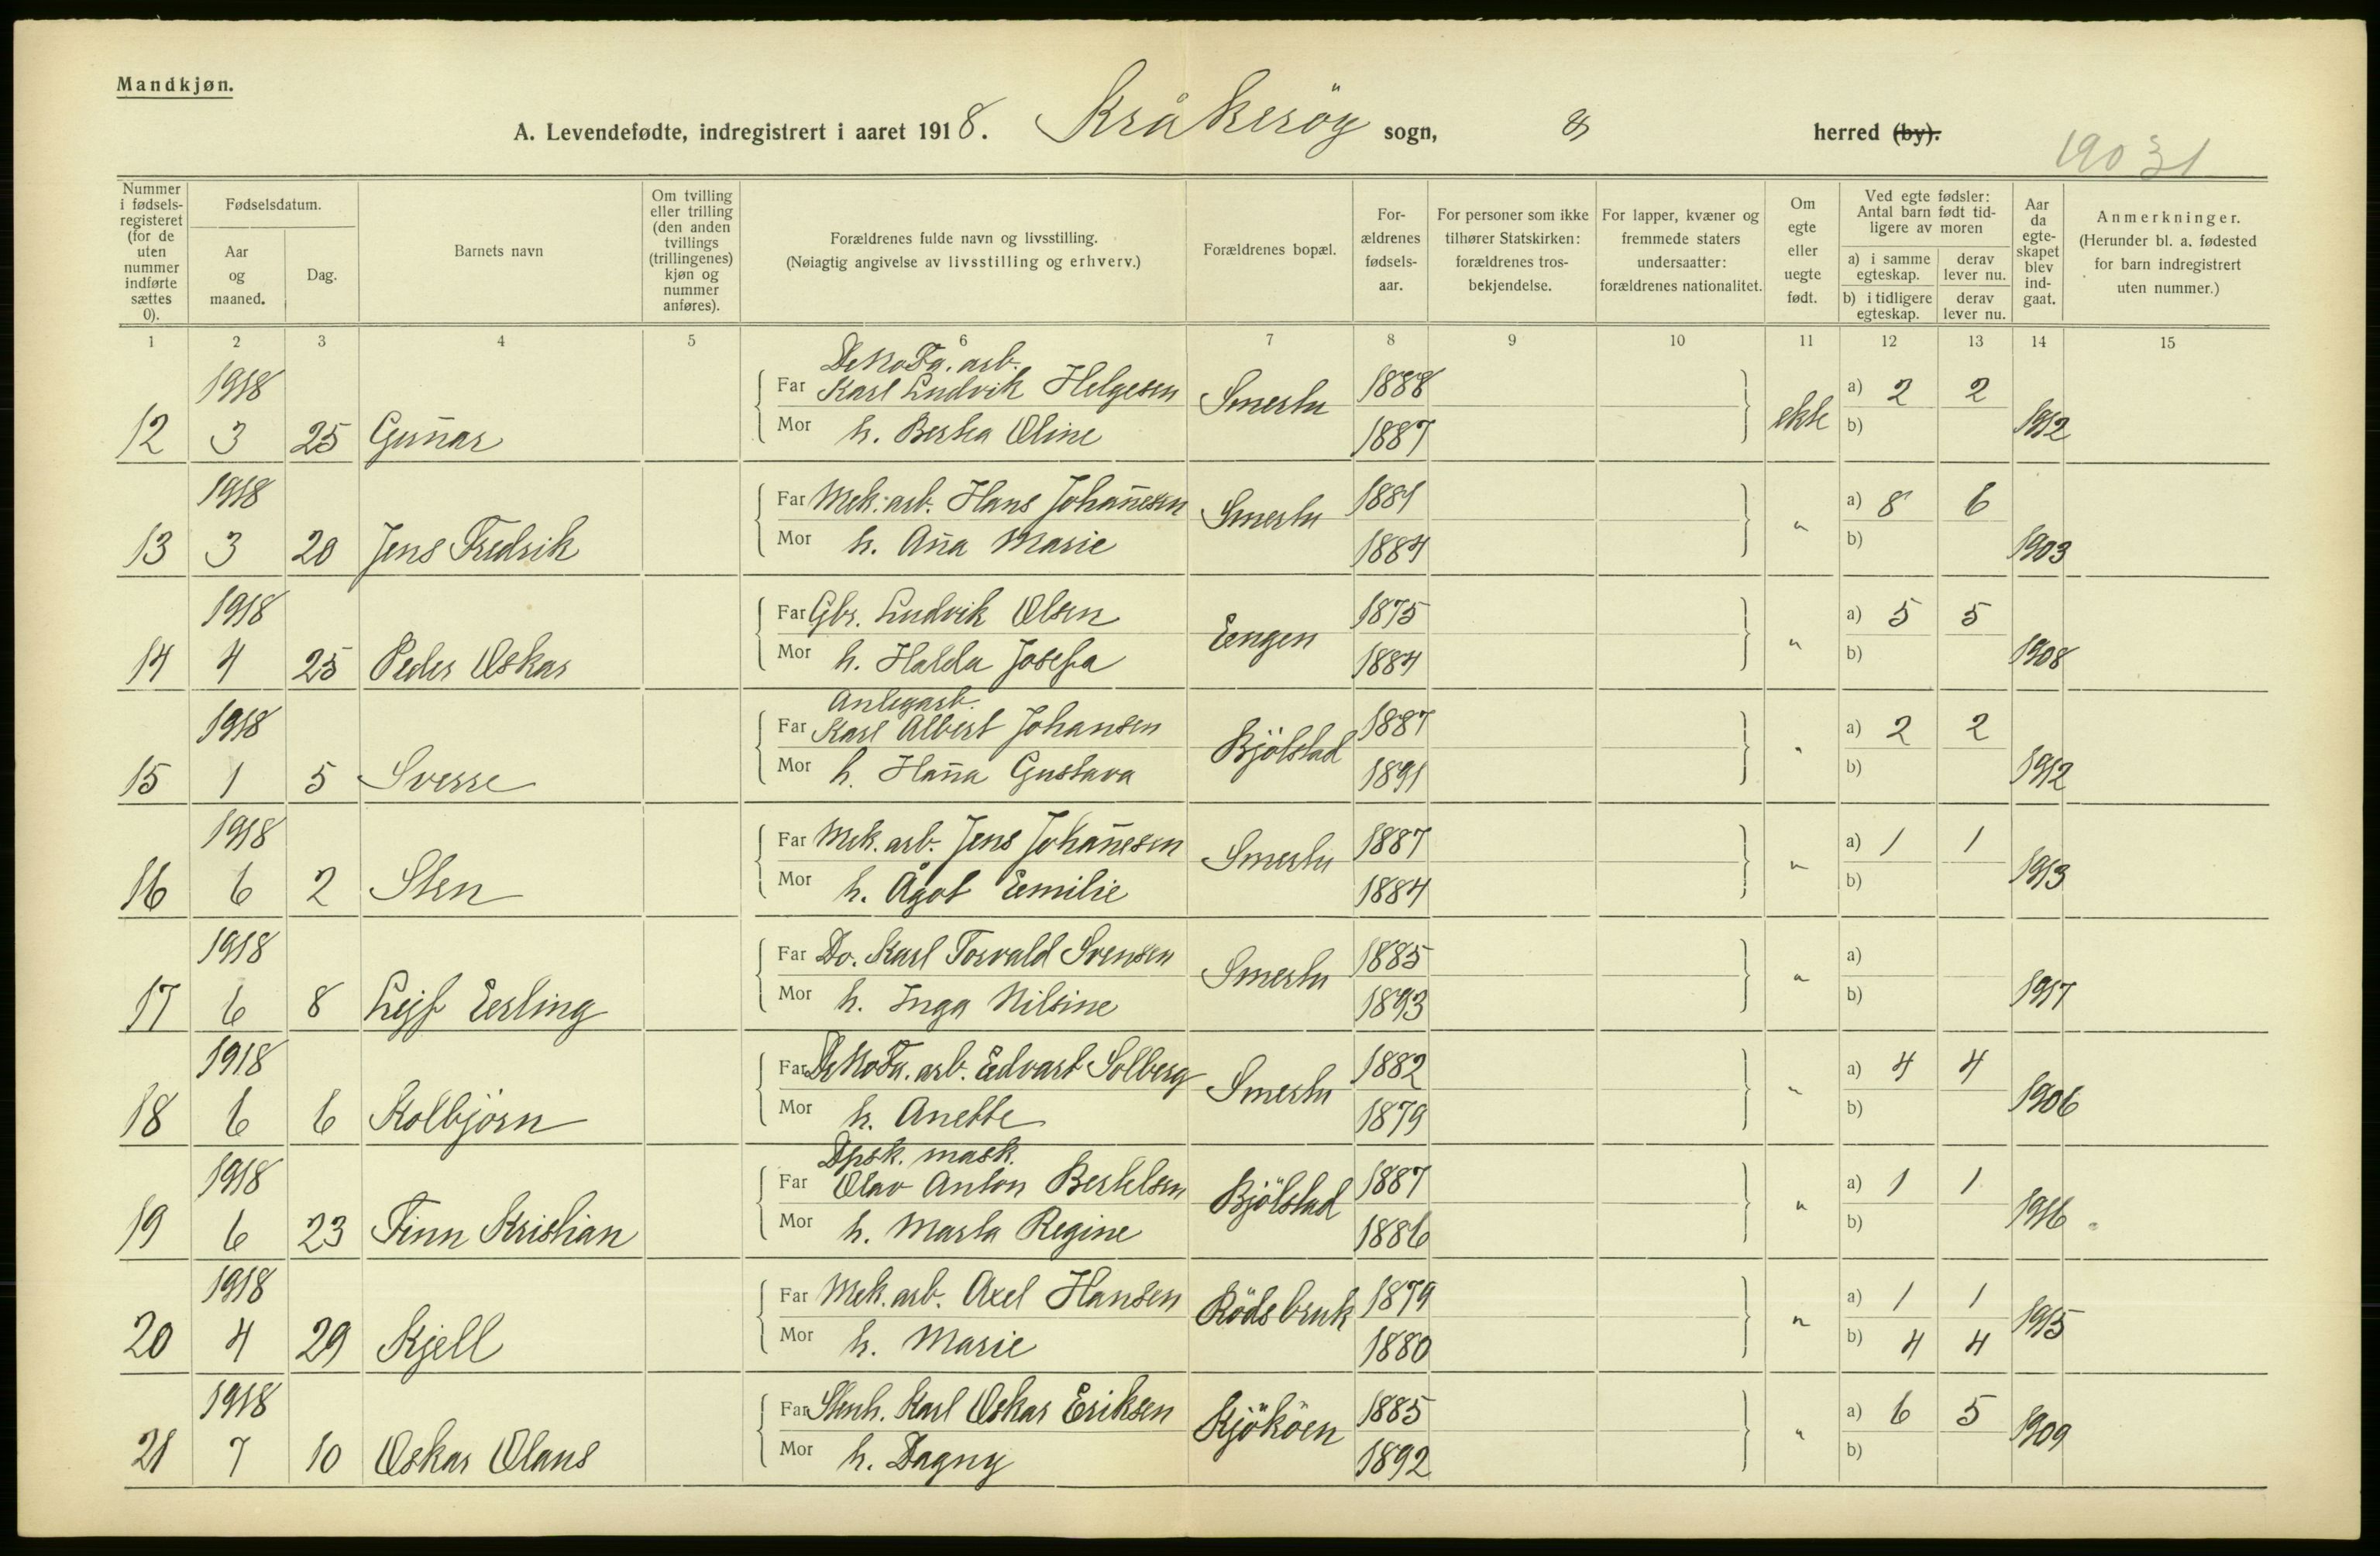 Mandkjøn.
A. Levendefødte, indregistrert i aaret 1918. Kråkeröy sogn, herred (by).
19031
Nummer i fødselsregisteret (for de uten nummer indførte sættes 0).
Fødselsdatum.
Aar og maaned.
Dag.
Barnets navn
Om tvilling eller trilling (den anden tvillings (trillingenes) kjøn og nummer anføres).
Forældrenes fulde navn og livsstilling.
(Nøiagtig angivelse av livsstilling og erhverv.)
Forældrenes bopæl.
Forældrenes fødselsaar.
For personer som ikke tilhører Statskirken: forældrenes trosbekjendelse.
For lapper, kvæner og fremmede staters undersaatter: forældrenes nationalitet.
Om egte eller uegte født.
Ved egte fødsler: Antal barn født tidligere av moren
a) i samme egteskap. derav lever nu.
b) i tidligere egteskap. derav lever nu.
Aar da egteskapet blev indgaat.
Anmerkninger.
(Herunder bl. a. fødested for barn indregistrert uten nummer.)
1 2 3 4 5 6 7 8 9 10 11 12 13 14 15
DeNoFa. arb.
1918 Far Karl Ludvik Helgesen Smertu 1888 a) 2 2
12 3 25 Guñar Mor h. Berta Oline 1887 ekte b) 1912
1918 Far Mek. arb. Hans Johañesen Smertu 1881 a) 8 6
13 3 20 Jens Fredrik Mor h. Aña Marie 1884 " b) 1903
1918 Far Gbr. Ludvik Olsen Eengen 1875 a) 5 5
14 4 25 Peder Oskar Mor h. Halda Josefa 1884 " b) 1908
Anlegarb.
1918 Far Karl Albert Johansen Bjölstad 1887 a) 2 2
15 1 5 Sverre Mor h. Haña Gustava 1891 " b) 1912
1918 Far Mek. arb. Jens Johañesen Smertu 1887 a) 1 1
16 6 2 Sten Mor h. Ågot Eemilie 1884 " b) 1913
1918 Far Do. Karl Torvald Svensen Smertu 1885 a)
17 6 8 Lejf Eerling Mor h. Inga Nilsine 1893 " b) 1917
1918 Far DeNoFa. arb. Edvart Solberg Smertu 1882 a) 4 4
18 6 6 Kolbjörn Mor h. Anette 1879 " b) 1906
Dpsk. mask.
1918 Far Olav Anton Bertelsen Bjölstad 1887 a) 1 1
19 6 23 Finn Kristian Mor h. Marta Regine 1886 " b) 1916
1918 Far Mek. arb. Axel Hansen Rödsbruk 1879 a) 1 1
20 4 29 Kjell Mor h. Marie 1880 " b) 4 4 1915
1918 Far Stenh. Karl Oskar Eriksen Kjököen 1885 a) 6 5
21 7 10 Oskar Olaus Mor h. Dagny 1892 " b) 1909